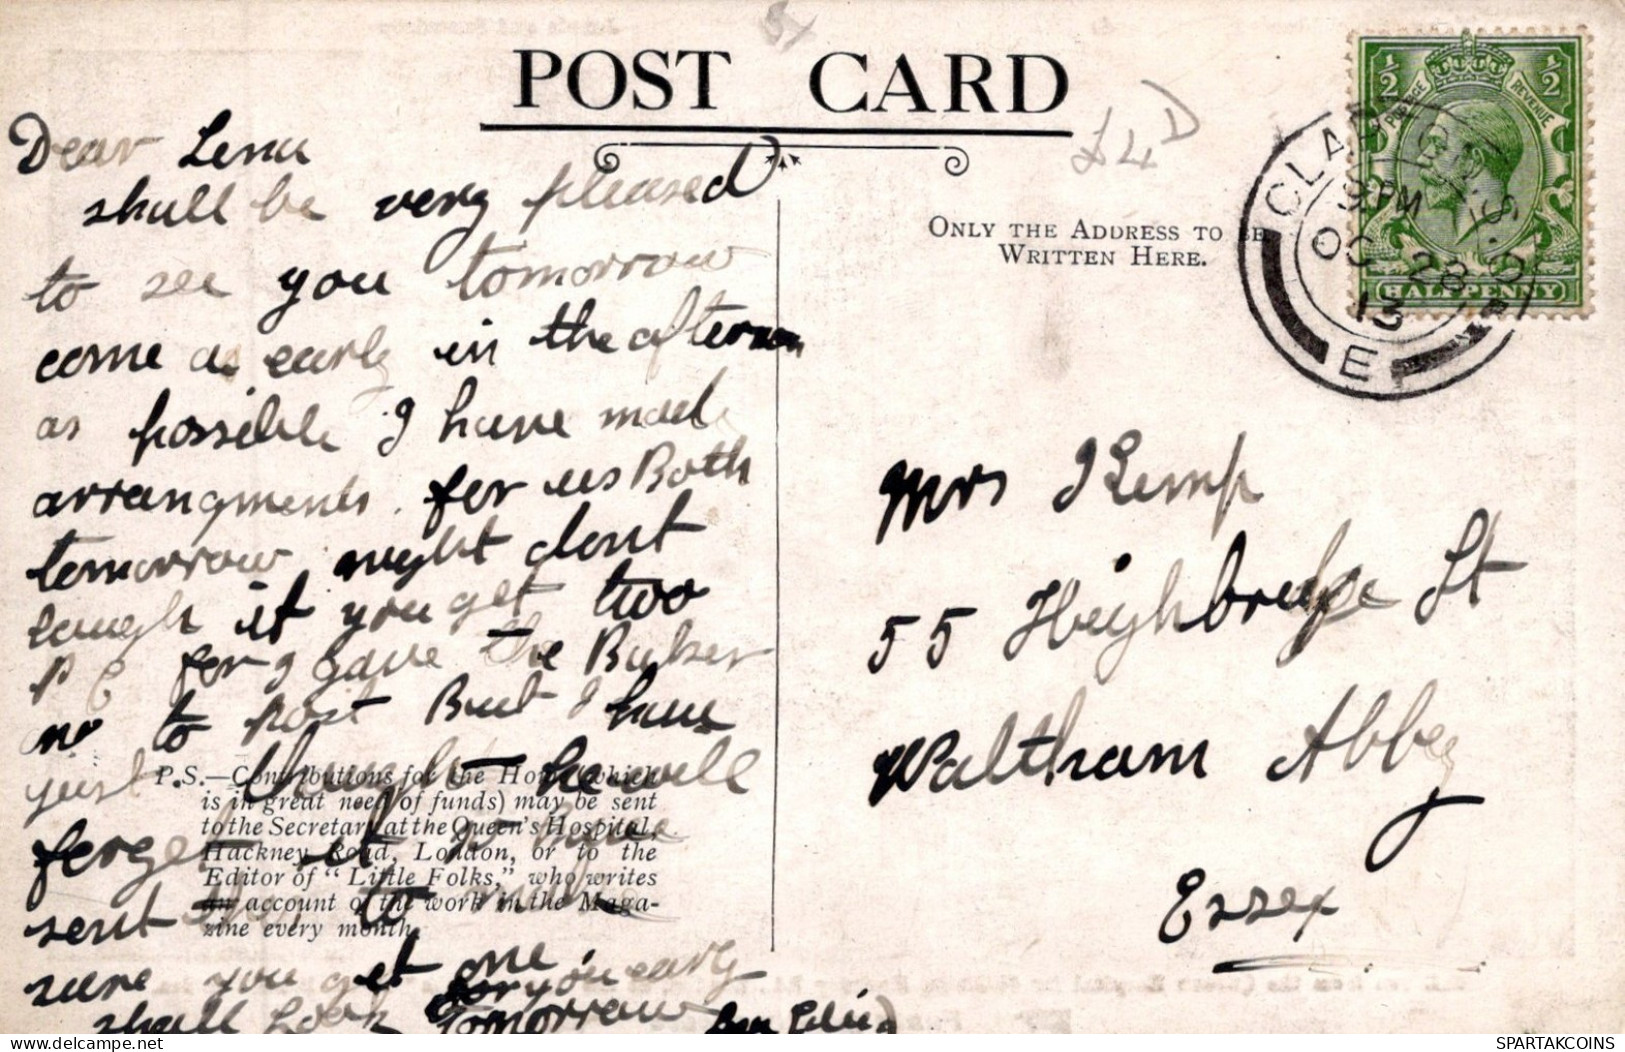 POST CARD
£4 D
ONLY THE ADDRESS TO BE
WRITTEN HERE.
½ ½
POSTAGE REVENUE
HALFPENNY
CLAPTON S.O.
9 PM
OC 28
13
E
Dear Lena
shall be very pleased
to see you tomorrow
come as early in the afternoon
as possible I have made
arrangments for us Both
tomorrow night dont
laugh if you get two
P C for I gave the Baker
no to post But I have
just thought he will
forget it so have
sent to
sure you get one
shall look for you early
tomorrow
P.S.—Contributions for the Home (which
is in great need of funds) may be sent
to the Secretary at the Queen's Hospital,
Hackney Road, London, or to the
Editor of "Little Folks," who writes
an account of the work in the Maga-
zine every month.
Mrs Kemp
55 Highbridge St
Waltham Abbey
Essex
SPARTAKCOINS
www.delcampe.net